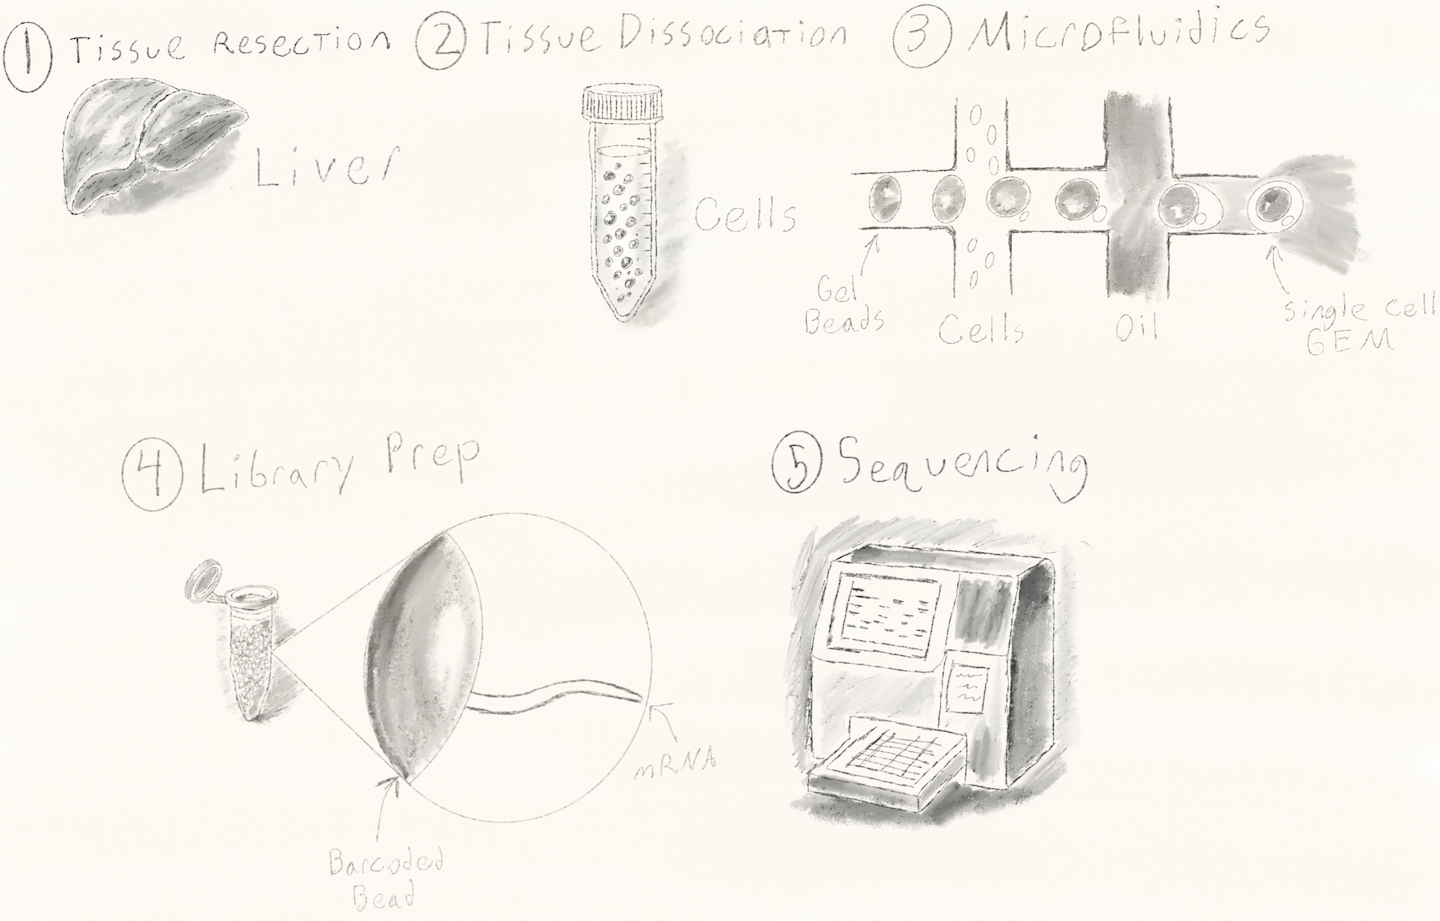 1 Tissue Resection
Liver
2 Tissue Dissociation
Cells
3 Microfluidics
Gel
Beads
Cells
Oil
single cell
GEM
4 Library Prep
mRNA
Barcoded
Bead
5 Sequencing